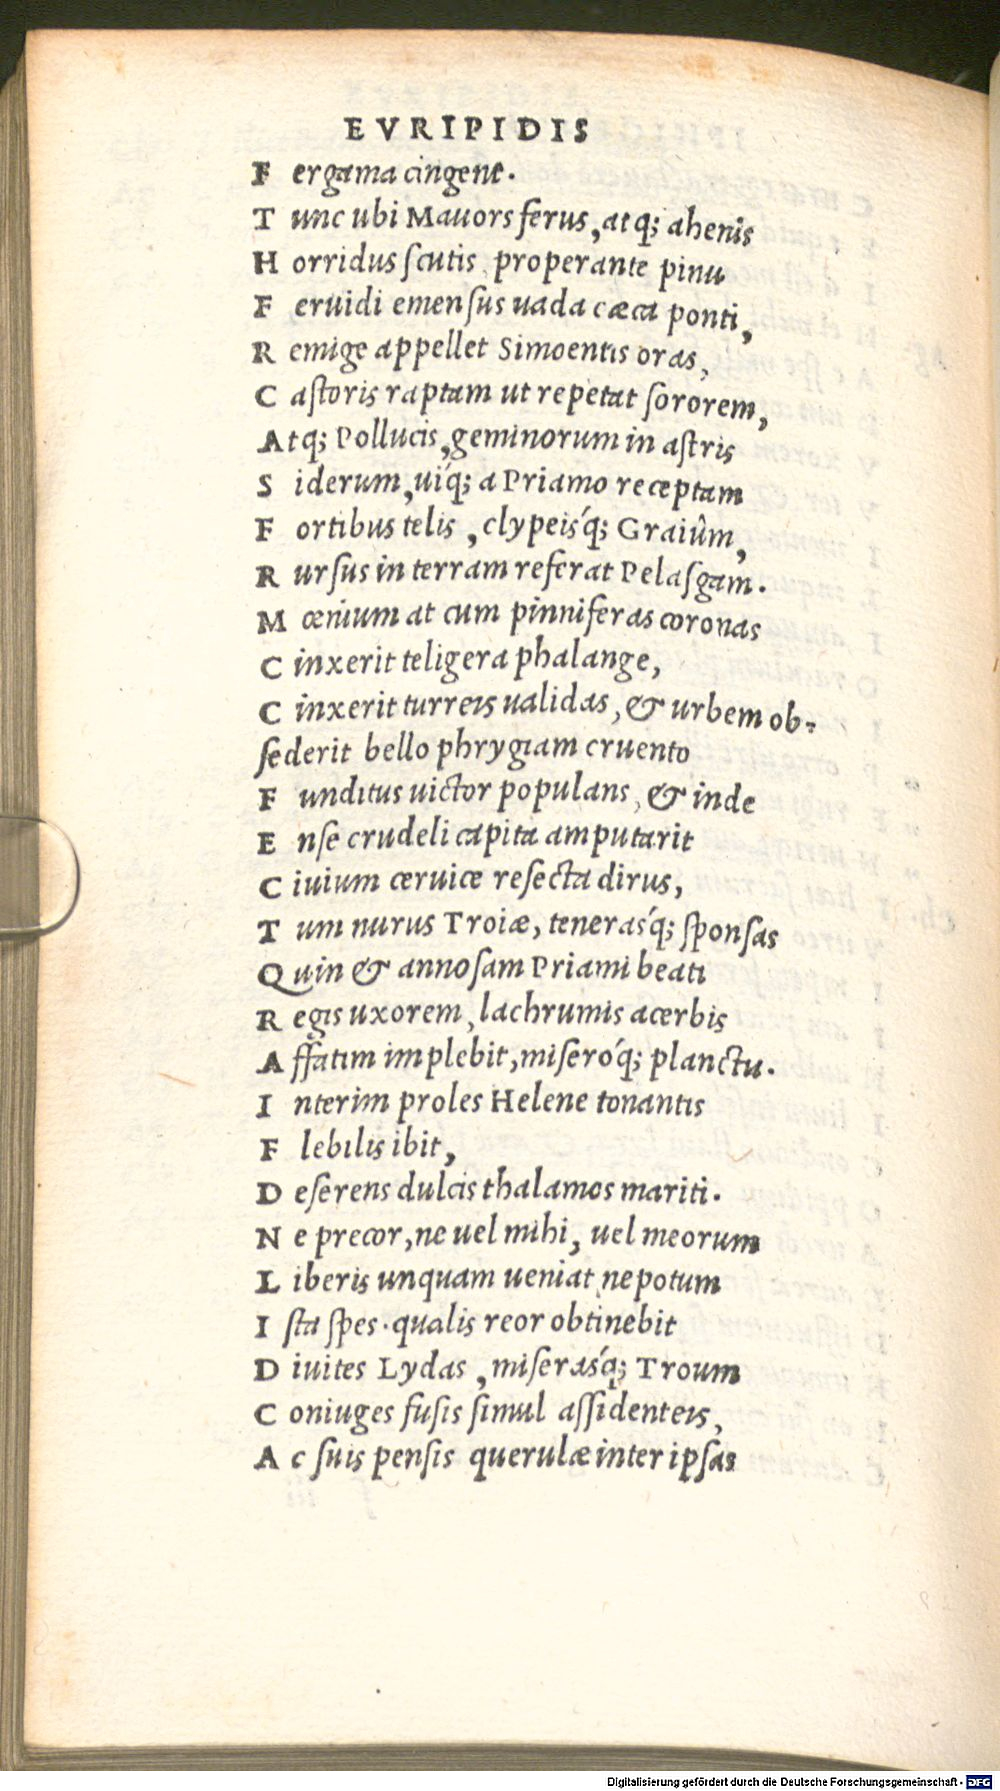 EVRIPIDIS
F ergama cingent.
T unc ubi Mauors ferus, atq; ahenis
H orridus scutis, properante pinu
F eruidi emensus uada cæca ponti,
R emige appellet Simoentis oras,
C astoris raptam ut repetat sororem,
A tq; Pollucis, geminorum in astris
S iderum, uiq́; a Priamo receptam
F ortibus telis, clypeisq́; Graiûm,
R ursus in terram referat Pelasgam.
M œnium at cum pinniferas coronas
C inxerit teligera phalange,
C inxerit turreis ualidas, & urbem ob-
sederit bello phrygiam cruento
F unditus uictor populans, & inde
E nse crudeli capita amputarit
C iuium ceruice resecta dirus,
T um nurus Troiæ, tenerasq́; sponsas
Q uin & annosam Priami beati
R egis uxorem, lachrumis acerbis
A ffatim implebit, miseroq́; planctu.
I nterim proles Helene tonantis
F lebilis ibit,
D eserens dulcis thalamos mariti.
N e precor, ne uel mihi, uel meorum
L iberis unquam ueniat nepotum
I sta spes. qualis reor obtinebit
D iuites Lydas, miserasq́; Troum
C oniuges fusis simul assidenteis,
A c suis pensis querulæ inter ipsas
Digitalisierung gefördert durch die Deutsche Forschungsgemeinschaft - DFG